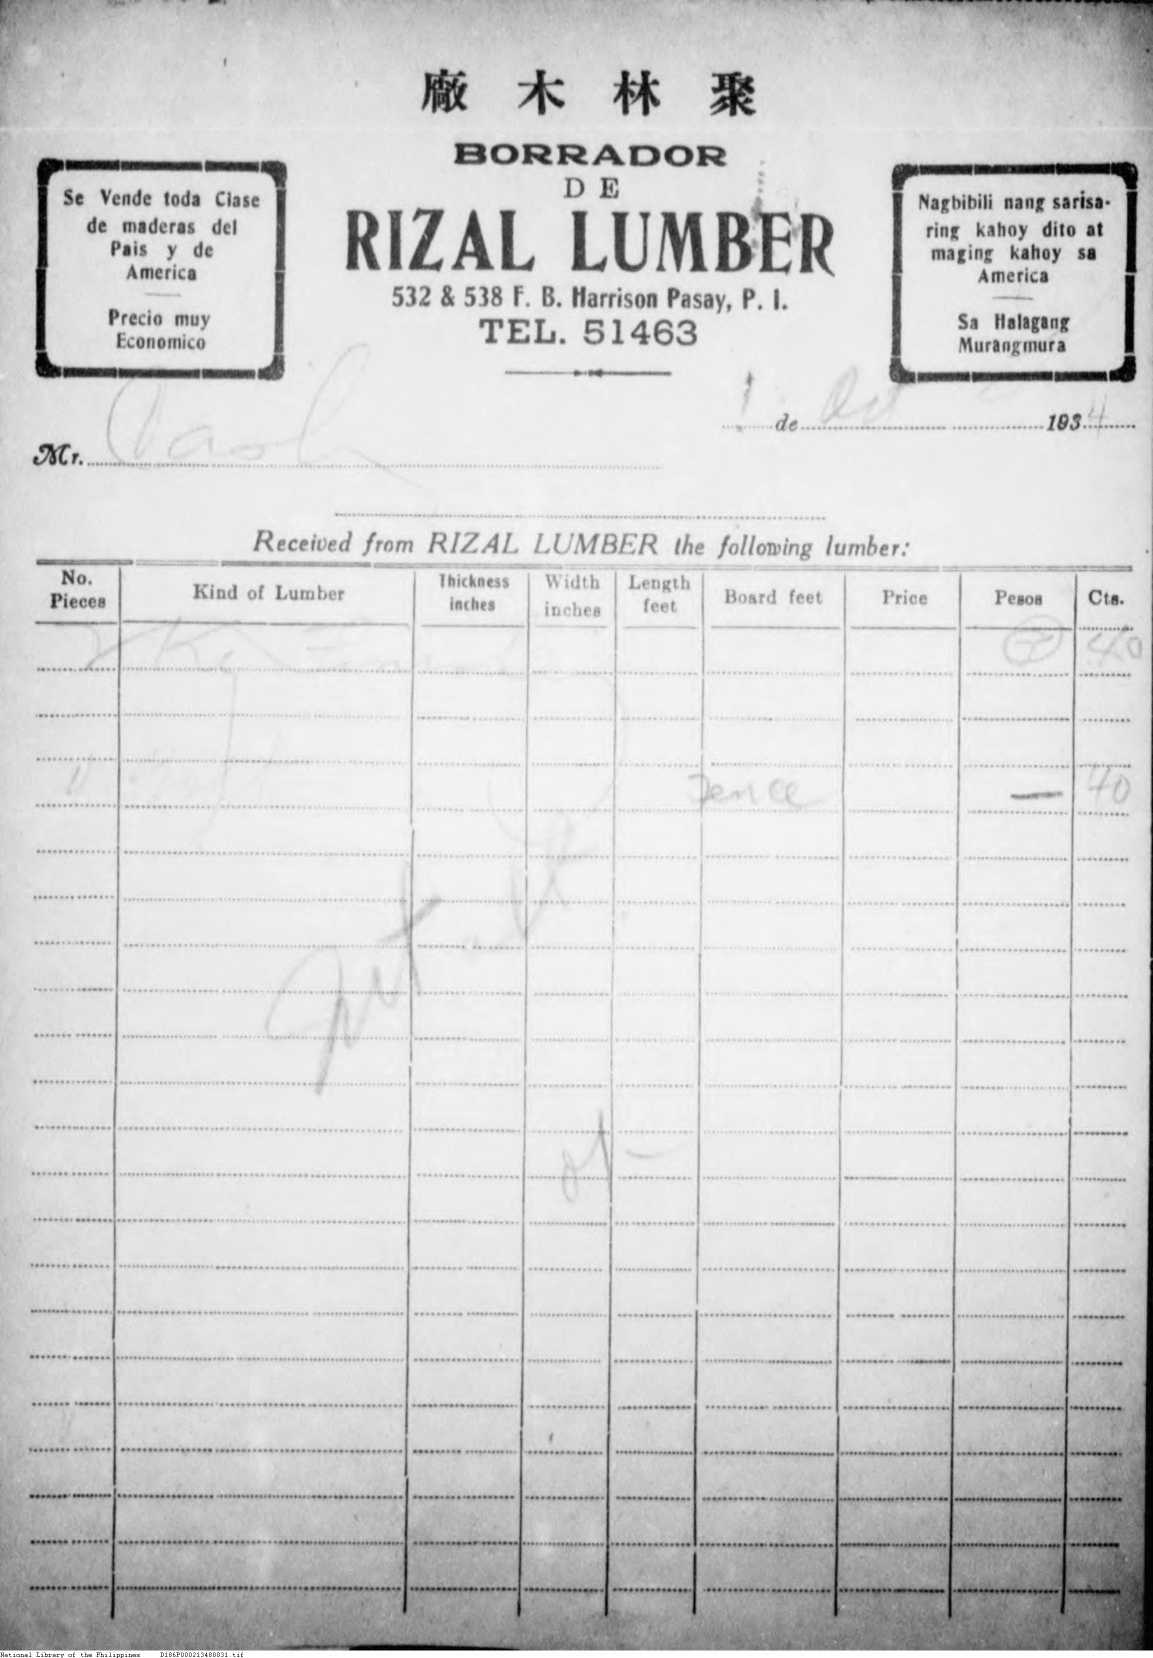 廠木林聚
BORRADOR
DE
RIZAL LUMBER
532 & 538 F. B. Harrison Pasay, P. I.
TEL. 51463
Se Vende toda Clase
de maderas del
Pais y de
America
Precio muy
Economico
Nagbibili nang sarisa-
ring kahoy dito at
maging kahoy sa
America
Sa Halagang
Murangmura
1 de Oct 1934
Mr. Cash
Received from RIZAL LUMBER the following lumber:
No. Pieces Kind of Lumber Thickness inches Width inches Length feet Board feet Price Pesos Cts.
40
— 40
National Library of the Philippines D186P000213480831.tif